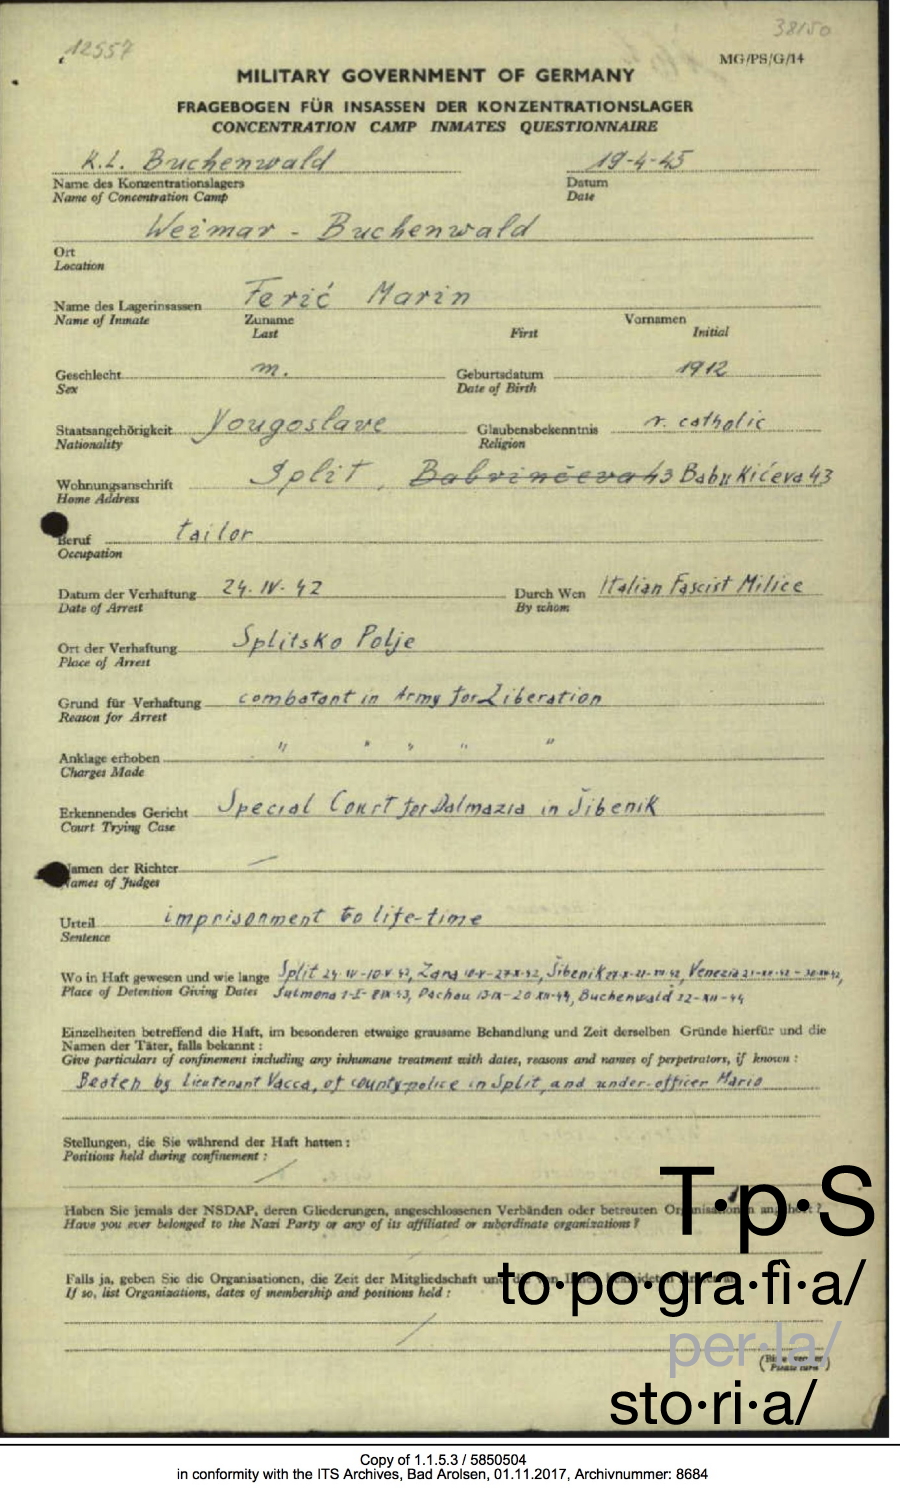 12557
38150
MG/PS/G/14
MILITARY GOVERNMENT OF GERMANY
FRAGEBOGEN FÜR INSASSEN DER KONZENTRATIONSLAGER
CONCENTRATION CAMP INMATES QUESTIONNAIRE
K.L. Buchenwald 19-4-45
Name des Konzentrationslagers Datum
Name of Concentration Camp Date
Weimar - Buchenwald
Ort
Location
Name des Lagerinsassen Ferić Marin
Name of Inmate Zuname Vornamen
Last First Initial
Geschlecht m. Geburtsdatum 1912
Sex Date of Birth
Staatsangehörigkeit Yougoslave Glaubensbekenntnis r. catholic
Nationality Religion
Wohnungsanschrift Split, Babrinčeva 43 Babukićeva 43
Home Address
Beruf tailor
Occupation
Datum der Verhaftung 24. IV. 42 Durch Wen Italian Fascist Milice
Date of Arrest By whom
Ort der Verhaftung Splitsko Polje
Place of Arrest
Grund für Verhaftung combatant in Army for Liberation
Reason for Arrest
Anklage erhoben " " " " "
Charges Made
Erkennendes Gericht Special Court for Dalmazia in Šibenik
Court Trying Case
Namen der Richter
Names of Judges
Urteil imprisonment to life-time
Sentence
Wo in Haft gewesen und wie lange Split 24-IV-10-V 42, Zara 10-V-27-X-42, Šibenik Venezia
Place of Detention Giving Dates Sulmona 1-I-8 IX 43, Dachau 13 IX-20 XII-44, Buchenwald 22-XII-44
Einzelheiten betreffend die Haft, im besonderen etwaige grausame Behandlung und Zeit derselben Gründe hierfür und die
Namen der Täter, falls bekannt :
Give particulars of confinement including any inhumane treatment with dates, reasons and names of perpetrators, if known :
Beaten by Lieutenant Vacca, of county-police in Split, and under-officer Mario
Stellungen, die Sie während der Haft hatten :
Positions held during confinement :
Haben Sie jemals der NSDAP, deren Gliederungen, angeschlossenen Verbänden oder betreuten Organisationen angehört ?
Have you ever belonged to the Nazi Party or any of its affiliated or subordinate organizations ?
Falls ja, geben Sie die Organisationen, die Zeit der Mitgliedschaft und die von Ihnen
If so, list Organizations, dates of membership and positions held :
(Bitte wenden
Please turn)
T·p·S
to·po·gra·fì·a/
per·la/
sto·ri·a/
Copy of 1.1.5.3 / 5850504
in conformity with the ITS Archives, Bad Arolsen, 01.11.2017, Archivnummer: 8684